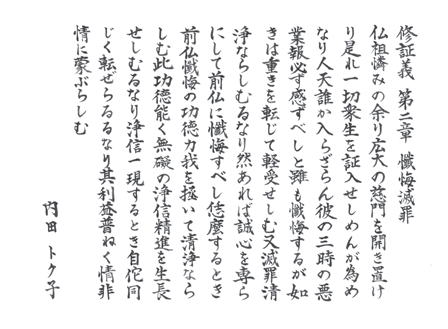 修証義 第二章 懺悔滅罪
仏祖憐みの余り広大の慈門を開き置け
り是れ一切衆生を証入せしめんが為め
なり人天誰か入らざらん彼の三時の悪
業報必ず感ずべしと雖も懺悔するが如
きは重きを転じて軽受せしむ又滅罪清
浄ならしむるなり然あれば誠心を専ら
にして前仏に懺悔すべし恁麼するとき
前仏懺悔の功徳力我を拯いて清浄なら
しむ此功徳能く無礙の浄信精進を生長
せしむるなり浄信一現するとき自佗同
じく転ぜらるるなり其利益普ねく情非
情に蒙ぶらしむ
内田 トク子